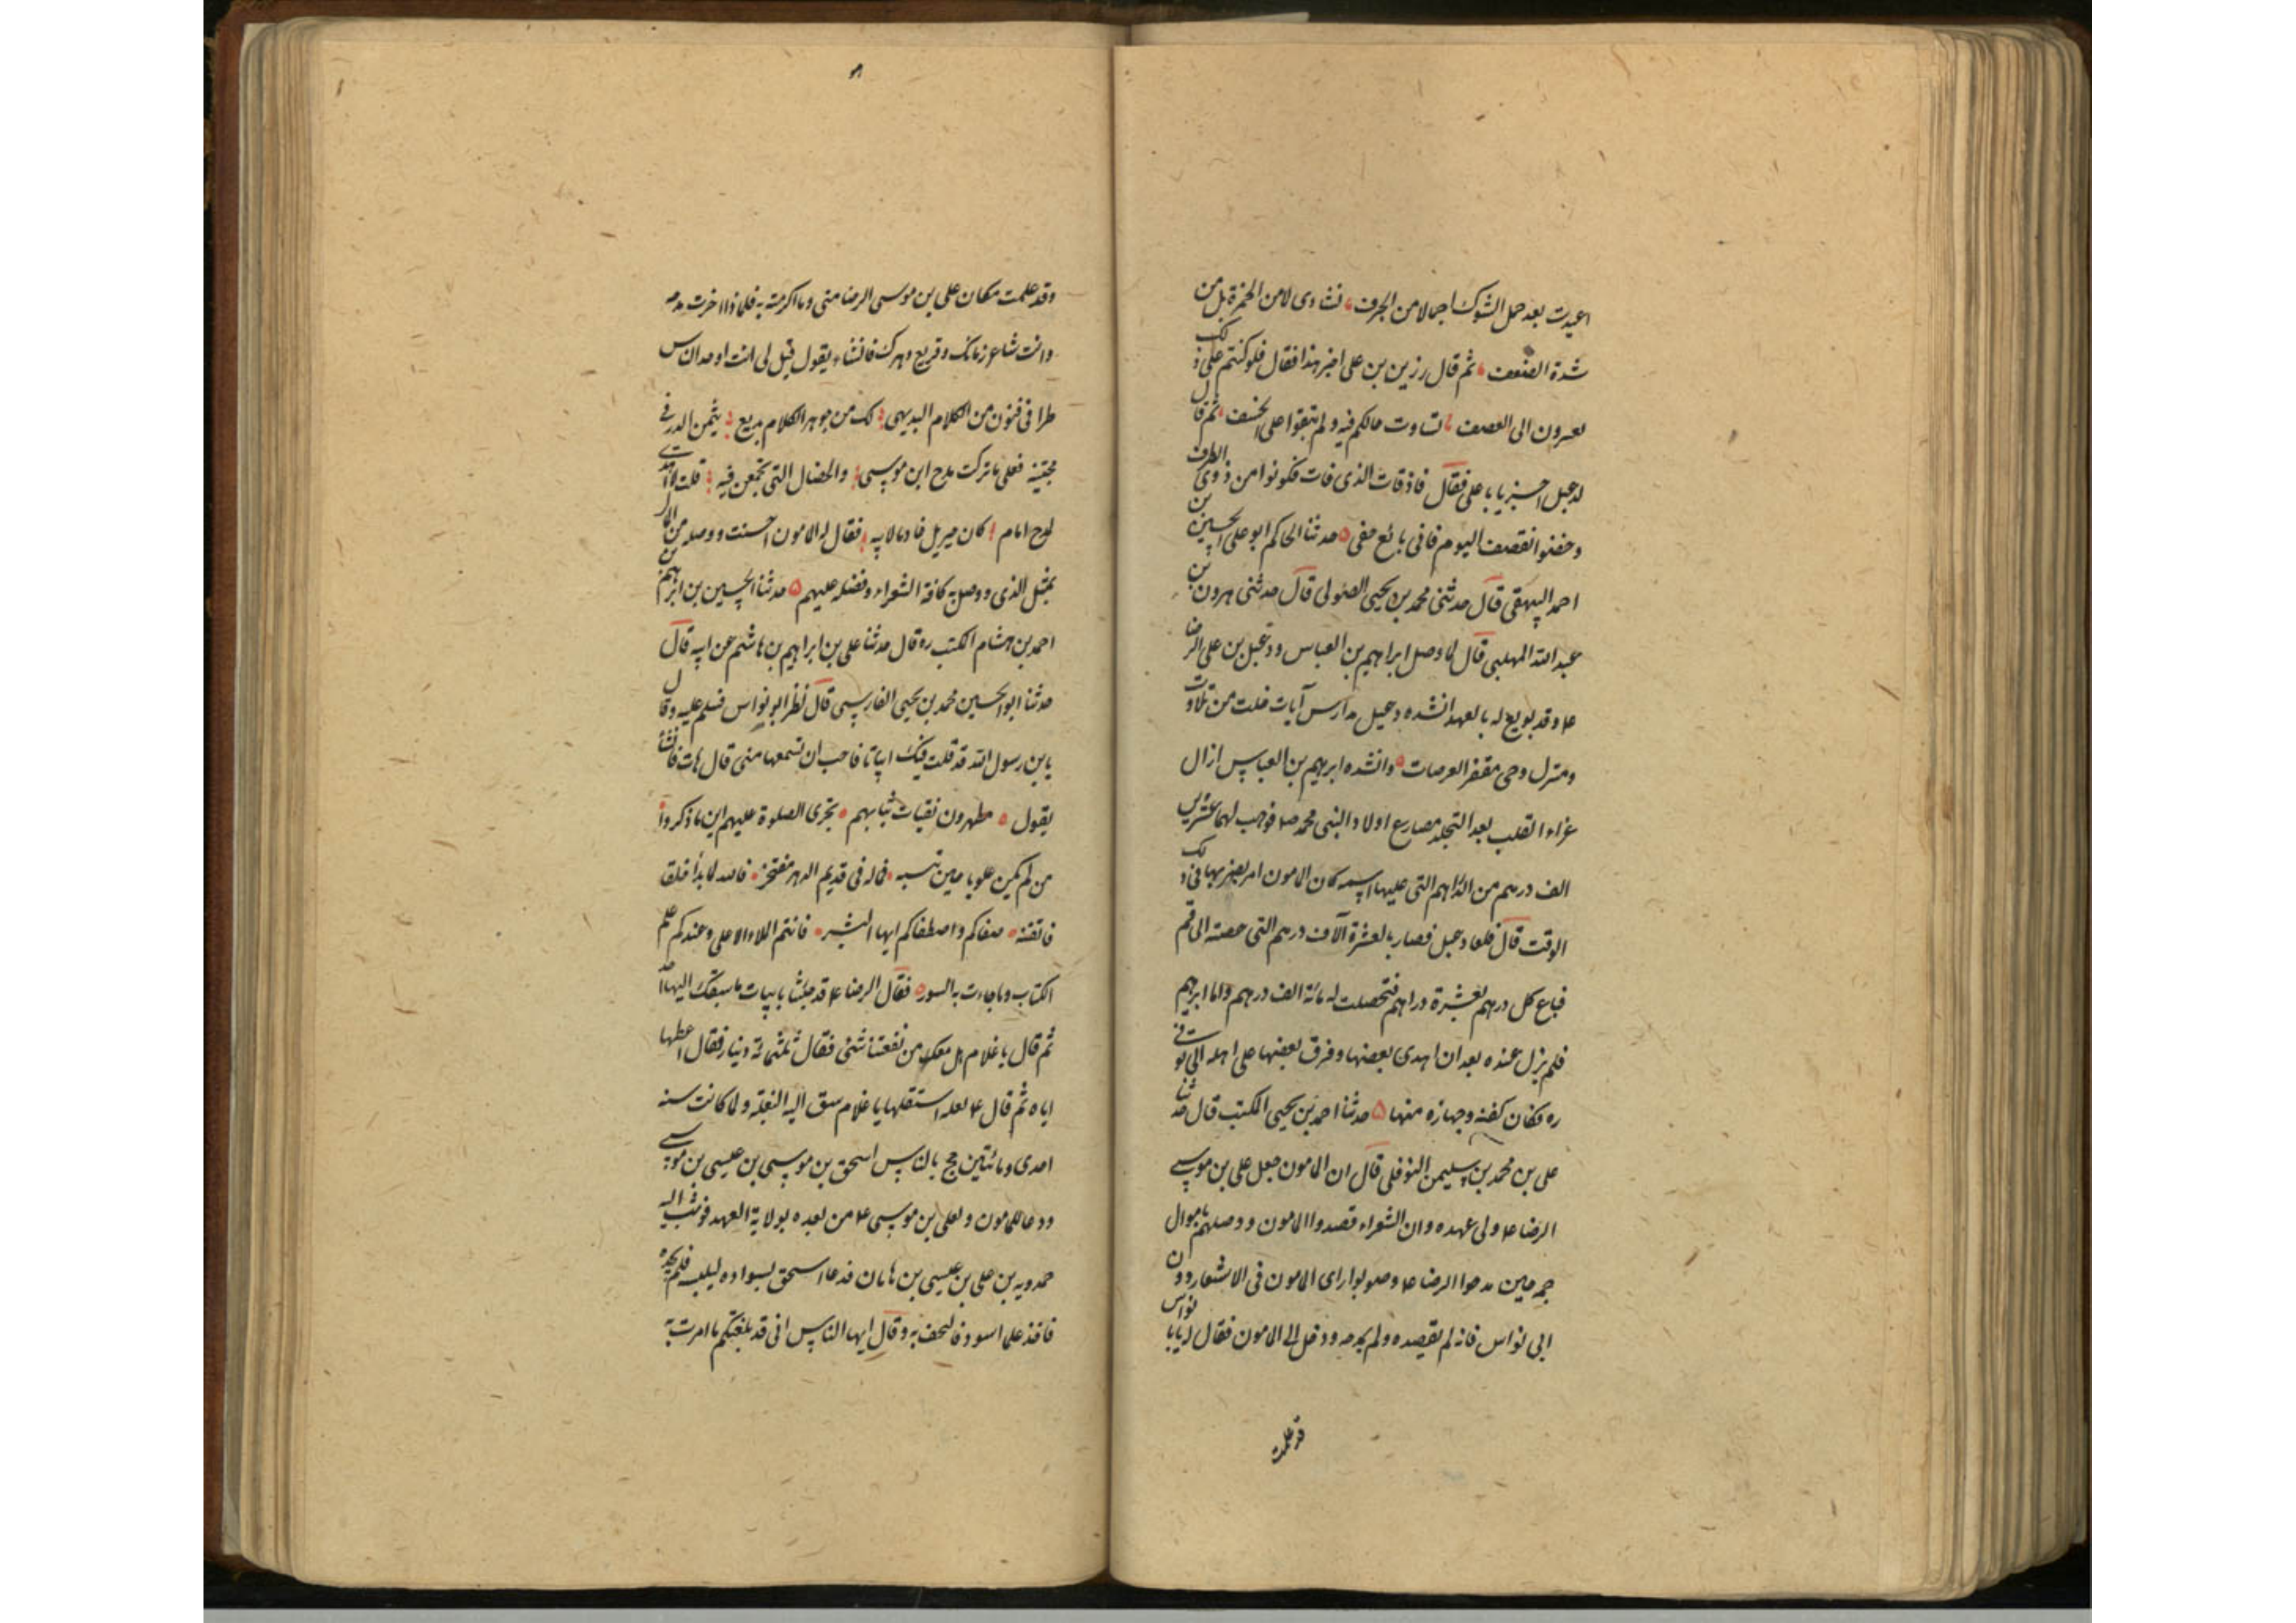 اعيدت بعد حمل الشوك اجمالا من الحزف، نشاوى لا من الخمرة بل من
شدة الضعف، ثم قال رزين بن على اجز هذا فقال فلو كنتم على ذلك
تصيرون الى القصف، تساوت حالكم فيه ولم تبقوا على الخسف، ثم قال
لدعبل اجز يا با على فقال فاذ فات الذى فات فكونوا من ذوى الظرف
وخفوا نقصف اليوم فانى بائع خفى ه حدثنا الحاكم ابو على الحسين بن
احمد البيهقى قال حدثنى محمد بن يحيى الصولى قال حدثنى هرون بن
عبد الله المهلبى قال لما وصل ابراهيم بن العباس ودعبل بن على الرضا
ع وقد بويع له بالعهد انشده دعبل مدارس آيات خلت من تلاوت
ومنزل وحى مقفر العرصات ه وانشده ابرهيم بن العباس ازال
عزاء القلب بعد التجلد مصارع اولاد النبى محمد ص فوهب لهما عشرين
الف درهم من الدراهم التى عليها اسمه كان المامون امر بضربها فى ذلك
الوقت قال فلما دعبل فصار بالعشرة آلاف درهم التى حصته الى قم
فباع كل درهم بعشرة دراهم فتحصلت له مائة الف درهم واما ابرهيم
فلم يزل عنده بعد ان اهدى بعضها وفرق بعضها على اهله الى توفى
ره فكان كفنه وجهازه منها ه حدثنا احمد بن يحيى المكتب قال حدثنا
على بن محمد بن سليمن النوفلى قال ان المامون جعل على بن موسى
الرضا ع ولى عهده وان الشعراء قصدوا المامون ووصلهم باموال
جمه حين مدحوا الرضا ع وصوبوا راى المامون فى الاشعار دون
ابى نواس فانه لم يقصده ولم يمدحه ودخل الى المامون فقال له يابا نواس
قد علمت
وقد علمت مكان على بن موسى الرضا منى وما اكرمته به فلماذا اخرت مدحه
وانت شاعر زمانك وقريع دهرك فانشاء يقول قيل لى انت اوحد الناس
طرا فى فنون من الكلام البديهى لك من جوهر الكلام بديع يثمن الدر فى
مجتنيه فعلى ما تركت مدح ابن موسى والخصال التى تجمعن فيه قلت لا اهتدى
لمدح امام كان جبريل خادما لابيه فقال له المامون احسنت ووصله من المال
بمثل الذى ووصل به كافة الشعراء وفضله عليهم ه حدثنا الحسين بن ابرهيم بن
احمد بن هشام المكتب ره قال حدثنا على بن ابراهيم بن هاشم عن ابيه قال
حدثنا ابو الحسين محمد بن يحيى الفارسى قال نظر ابو نواس فسلم عليه وقال
يابن رسول الله قد قلت فيك ابياتا فاحب ان تسمعها منى قال هات فانشأ
يقول ه مطهرون نقيات ثيابهم ه تجرى الصلوة عليهم اين ما ذكروا
من لم يكن علويا حين تنسبه ه فماله فى قديم الدهر مفتخر ه فالله لما بدأ خلقا
فاتقنه ه صفاكم واصطفاكم ايها البشر ه فانتم الملاء الاعلى وعندكم علم
الكتاب وما جاءت به السور ه فقال الرضا ع قد جئتنا بابيات ما سبقك اليها احد
ثم قال يا غلام هل معك من نفقتنا شئى فقال ثلثمائة دينار فقال اعطها
اياه ثم قال ع لعله استقلها يا غلام سق اليه البغلة ولما كانت سنه
احدى ومائتين حج بالناس اسحق بن موسى بن عيسى بن موسى
ودعا للمامون ولعلى بن موسى ع من بعده بولاية العهد فوثب اليه
حمدويه بن على بن عيسى بن هامان فدعا اسحق بسواده ليلبسه فلم يجده
فاخذ علما اسود فالتحف به وقال ايها الناس انى قد بلغتكم ما امرت به